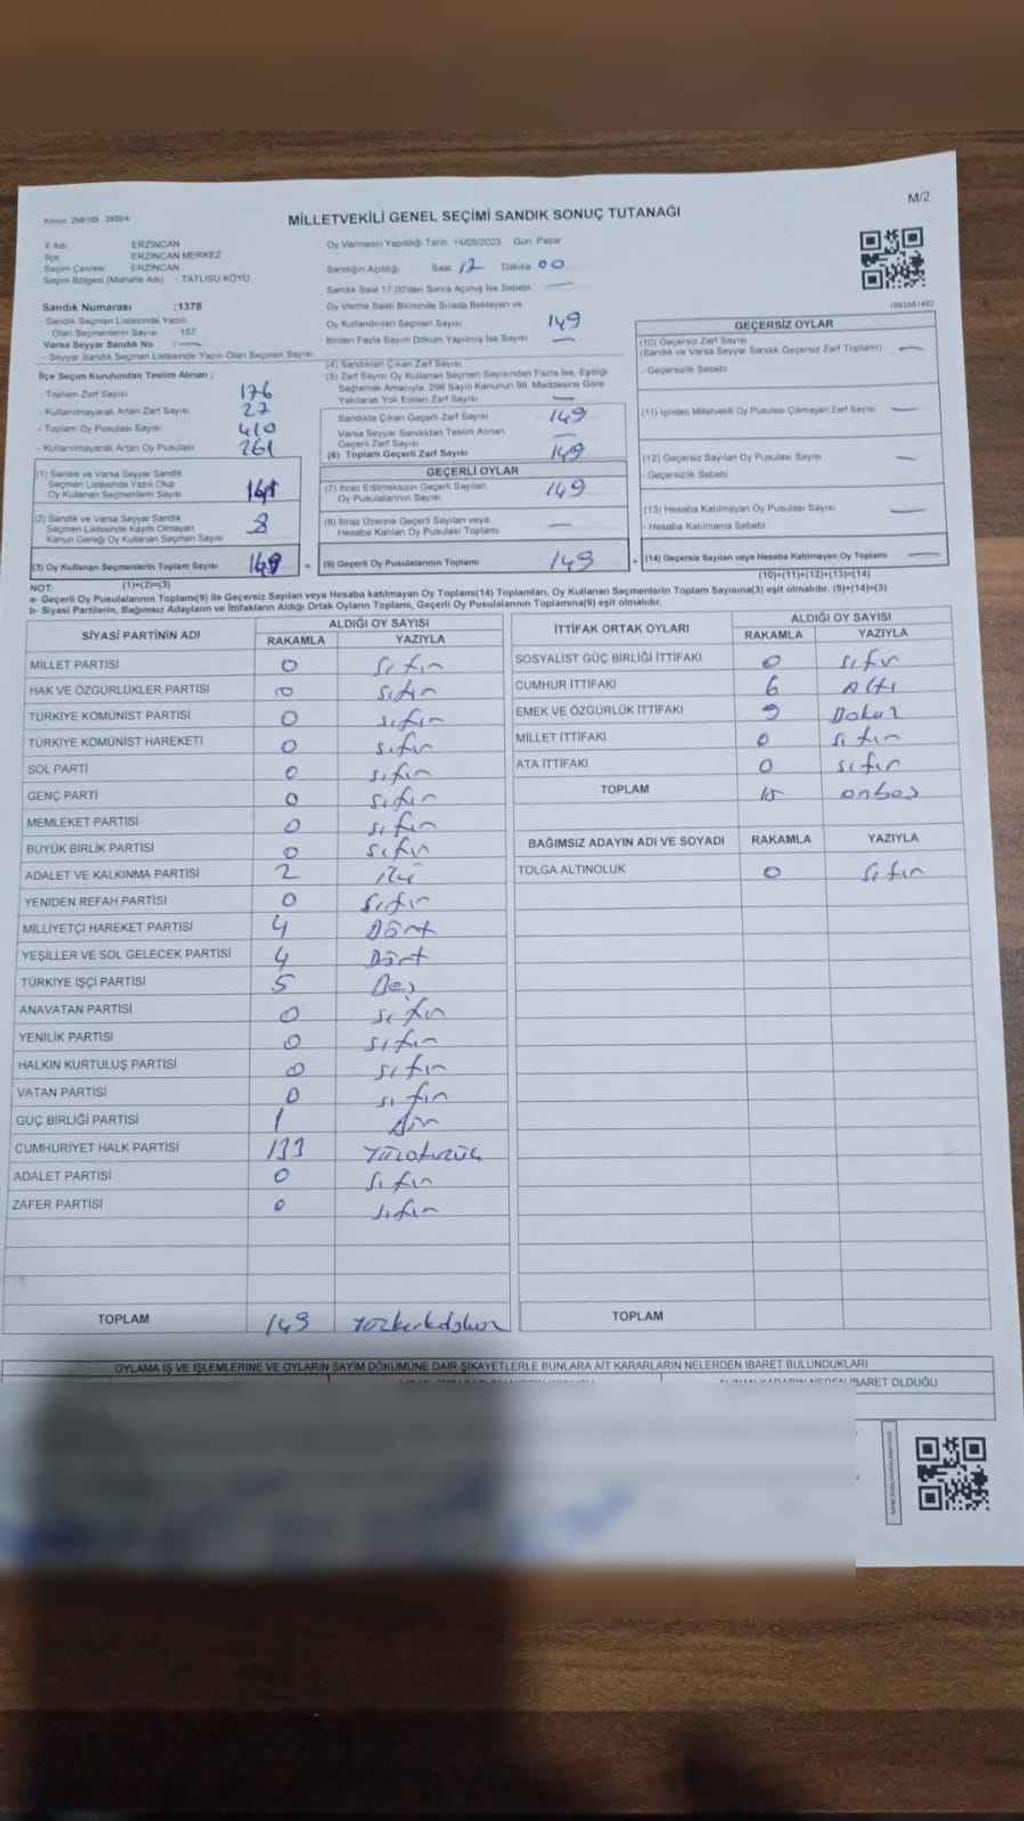 M/2
MİLLETVEKİLİ GENEL SEÇİMİ SANDIK SONUÇ TUTANAĞI
İl Adı ERZİNCAN
İlçe ERZİNCAN MERKEZ
Seçim Çevresi ERZİNCAN
Seçim Bölgesi (Mahalle Adı) : TATLISU KÖYÜ
Oy Vermenin Yapıldığı Tarih 14/05/2023 Gün Pazar
Sandığın Açıldığı Saat 17 Dakika 00
Sandık Saat 17.00'den Sonra Açılmış İse Sebebi
Sandık Numarası :1378
Sandık Seçmen Listesinde Yazılı
Olan Seçmenlerin Sayısı 152
Varsa Seyyar Sandık No :
- Seyyar Sandık Seçmen Listesinde Yazılı Olan Seçmen Sayısı
Oy Verme Saati Bitiminde Sırada Bekleyen ve
Oy Kullandırılan Seçmen Sayısı 149
Birden Fazla Sayım Döküm Yapılmış İse Sayısı
İlçe Seçim Kurulundan Teslim Alınan :
Toplam Zarf Sayısı 176
- Kullanılmayarak Artan Zarf Sayısı 27
- Toplam Oy Pusulası Sayısı 410
- Kullanılmayarak Artan Oy Pusulası 261
(1) Sandık ve Varsa Seyyar Sandık
Seçmen Listesinde Yazılı Olup
Oy Kullanan Seçmenlerin Sayısı
(2) Sandık ve Varsa Seyyar Sandık
Seçmen Listesinde Kayıtlı Olmayan
Kanun Gereği Oy Kullanan Seçmen Sayısı 8
(3) Oy Kullanan Seçmenlerin Toplam Sayısı 149
(1)+(2)=(3)
(4) Sandıktan Çıkan Zarf Sayısı
(5) Zarf Sayısı Oy Kullanan Seçmen Sayısından Fazla İse, Eşitliği
Sağlamak Amacıyla, 298 Sayılı Kanunun 98. Maddesine Göre
Yakılarak Yok Edilen Zarf Sayısı
Sandıkta Çıkan Geçerli Zarf Sayısı 149
Varsa Seyyar Sandıktan Teslim Alınan
Geçerli Zarf Sayısı
(6) Toplam Geçerli Zarf Sayısı 149
GEÇERLİ OYLAR
(7) İtiraz Edilmeksizin Geçerli Sayılan
Oy Pusulalarının Sayısı 149
(8) İtiraz Üzerine Geçerli Sayılan veya
Hesaba Katılan Oy Pusulası Toplamı
(9) Geçerli Oy Pusulalarının Toplamı 149
GEÇERSİZ OYLAR
(10) Geçersiz Zarf Sayısı
(Sandık ve Varsa Seyyar Sandık Geçersiz Zarf Toplamı)
- Geçersizlik Sebebi
(11) İçinden Milletvekili Oy Pusulası Çıkmayan Zarf Sayısı
(12) Geçersiz Sayılan Oy Pusulası Sayısı
- Geçersizlik Sebebi
(13) Hesaba Katılmayan Oy Pusulası Sayısı
- Hesaba Katılmama Sebebi
(14) Geçersiz Sayılan veya Hesaba Katılmayan Oy Toplamı
(10)+(11)+(12)+(13)=(14)
NOT:
a- Geçerli Oy Pusulalarının Toplamı(9) ile Geçersiz Sayılan veya Hesaba katılmayan Oy Toplamı(14) Toplamları, Oy Kullanan Seçmenlerin Toplam Sayısına(3) eşit olmalıdır. (9)+(14)=(3)
b- Siyasi Partilerin, Bağımsız Adayların ve İttifakların Aldığı Ortak Oyların Toplamı, Geçerli Oy Pusulalarının Toplamına(9) eşit olmalıdır.
SİYASİ PARTİNİN ADI ALDIĞI OY SAYISI
RAKAMLA YAZIYLA
MİLLET PARTİSİ 0 sıfır
HAK VE ÖZGÜRLÜKLER PARTİSİ 0 sıfır
TÜRKİYE KOMÜNİST PARTİSİ 0 sıfır
TÜRKİYE KOMÜNİST HAREKETİ 0 sıfır
SOL PARTİ 0 sıfır
GENÇ PARTİ 0 sıfır
MEMLEKET PARTİSİ 0 sıfır
BÜYÜK BİRLİK PARTİSİ 0 sıfır
ADALET VE KALKINMA PARTİSİ 2 iki
YENİDEN REFAH PARTİSİ 0 sıfır
MİLLİYETÇİ HAREKET PARTİSİ 4 Dört
YEŞİLLER VE SOL GELECEK PARTİSİ 4 Dört
TÜRKİYE İŞÇİ PARTİSİ 5 Beş
ANAVATAN PARTİSİ 0 sıfır
YENİLİK PARTİSİ 0 sıfır
HALKIN KURTULUŞ PARTİSİ 0 sıfır
VATAN PARTİSİ 0 sıfır
GÜÇ BİRLİĞİ PARTİSİ 1 Bir
CUMHURİYET HALK PARTİSİ 133 Yüzotuzüç
ADALET PARTİSİ 0 sıfır
ZAFER PARTİSİ 0 sıfır
TOPLAM 149 Yüzkırkdokuz
İTTİFAK ORTAK OYLARI ALDIĞI OY SAYISI
RAKAMLA YAZIYLA
SOSYALİST GÜÇ BİRLİĞİ İTTİFAKI 0 sıfır
CUMHUR İTTİFAKI 6 Altı
EMEK VE ÖZGÜRLÜK İTTİFAKI 9 Dokuz
MİLLET İTTİFAKI 0 sıfır
ATA İTTİFAKI 0 sıfır
TOPLAM 15 onbeş
BAĞIMSIZ ADAYIN ADI VE SOYADI RAKAMLA YAZIYLA
TOLGA ALTINOLUK 0 sıfır
TOPLAM
OYLAMA İŞ VE İŞLEMLERİNE VE OYLARIN SAYIM DÖKÜMÜNE DAİR ŞİKAYETLERLE BUNLARA AİT KARARLARIN NELERDEN İBARET BULUNDUKLARI
İBARET OLDUĞU